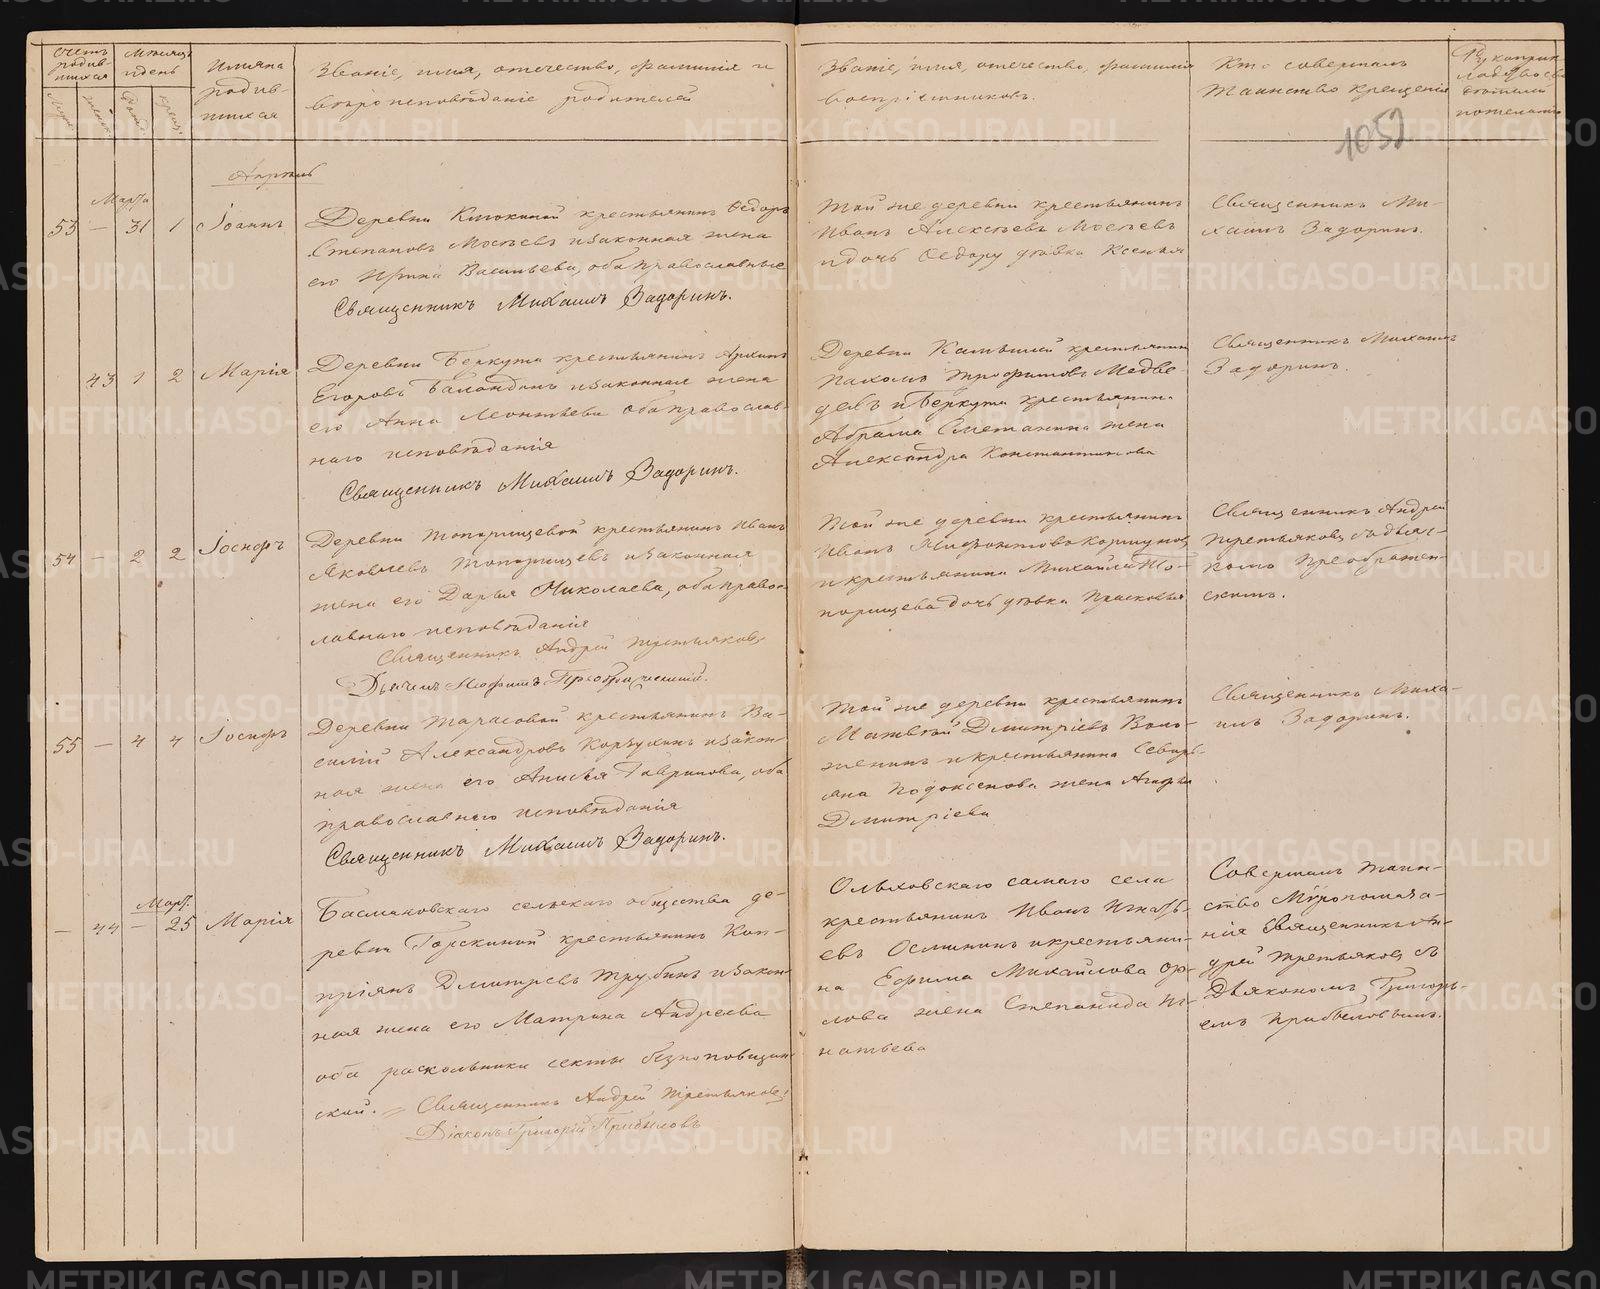 Счетъ родив-
шихся
Мѣсяцъ
и день
Имяна
родив-
шихся
Званіе, имя, отечество, фамилія и
вѣроисповѣданіе родителей
Званіе, имя, отечество, фамилія
воспріемниковъ.
Кто совершалъ
таинство крещенія
1052
Апрѣль
Марта
53 — 31 1 Іоаннъ
Деревни крестьянинъ Ѳедоръ
Степановъ Мосѣевъ и законная жена
его Ирина Васильева, оба православные
Священникъ Михаилъ Задоринъ.
Той же деревни крестьянинъ
Иванъ Алексѣевъ Мосѣевъ
и дочь Ѳедору дѣвка Ксенья
Священникъ Ми-
хаилъ Задоринъ.
43 1 2 Марія
Деревни Беркута крестьянинъ Архипъ
Егоровъ Баландинъ и законная жена
его Анна Леонтьева оба православ-
наго исповѣданія
Священникъ Михаилъ Задоринъ.
Деревни Камышей крестьянин
Пахомъ Трофимовъ Медвѣ-
девъ и Беркута крестьянин.
Абрама Сметанина жена
Александра Константинова
Священникъ Михаилъ
Задоринъ.
54 — 2 2 Іосифъ
Деревни Топорищевой крестьянинъ Иванъ
Яковлевъ Топорищевъ и законная
жена его Дарья Николаева, оба правос-
лавнаго исповѣданія
Священникъ Андрей Третьяковъ
Дьячекъ Преображенскій.
Той же деревни крестьянинъ
Иванъ Коршуновъ
и крестьянина Михаила То-
порищева дочь дѣвка Прасковья
Священникъ Андрей
Третьяковъ съ дьяч-
комъ Преображен-
скимъ.
55 — 4 4 Іосифъ
Деревни Тарасовой крестьянинъ Ва-
силій Александровъ Корзухинъ и закон-
ная жена его Анисья Гаврилова, оба
православнаго исповѣданія
Священникъ Михаилъ Задоринъ.
Той же деревни крестьянинъ
Матвѣй Дмитріевъ Воло-
женинъ и крестьянина Севирь-
яна Подоксенова жена Агафья
Дмитріева
Священникъ Миха-
илъ Задоринъ.
Март.
— 44 — 25 Марія
Басмановскаго сельскаго общества де-
ревни Горскиной крестьянинъ Кип-
ріянъ Дмитріевъ Трубинъ и закон-
ная жена его Матрона Андреева
оба раскольники секты безпоповщин-
ской. — Священникъ Андрей Третьяковъ
Діаконъ Григорій Прибыловъ
Ольховскаго самаго села
крестьянинъ Иванъ Игнать-
евъ Осининъ и крестьяни-
на Ефима Михайлова Ор-
лова жена Степанида Иг-
натьева
Совершалъ таин-
ство Мѵропомаза-
нія Священникъ Ан-
дрей Третьяковъ съ
Діакономъ Григорь-
емъ Прибыловымъ.
METRIKI.GASO-URAL.RU